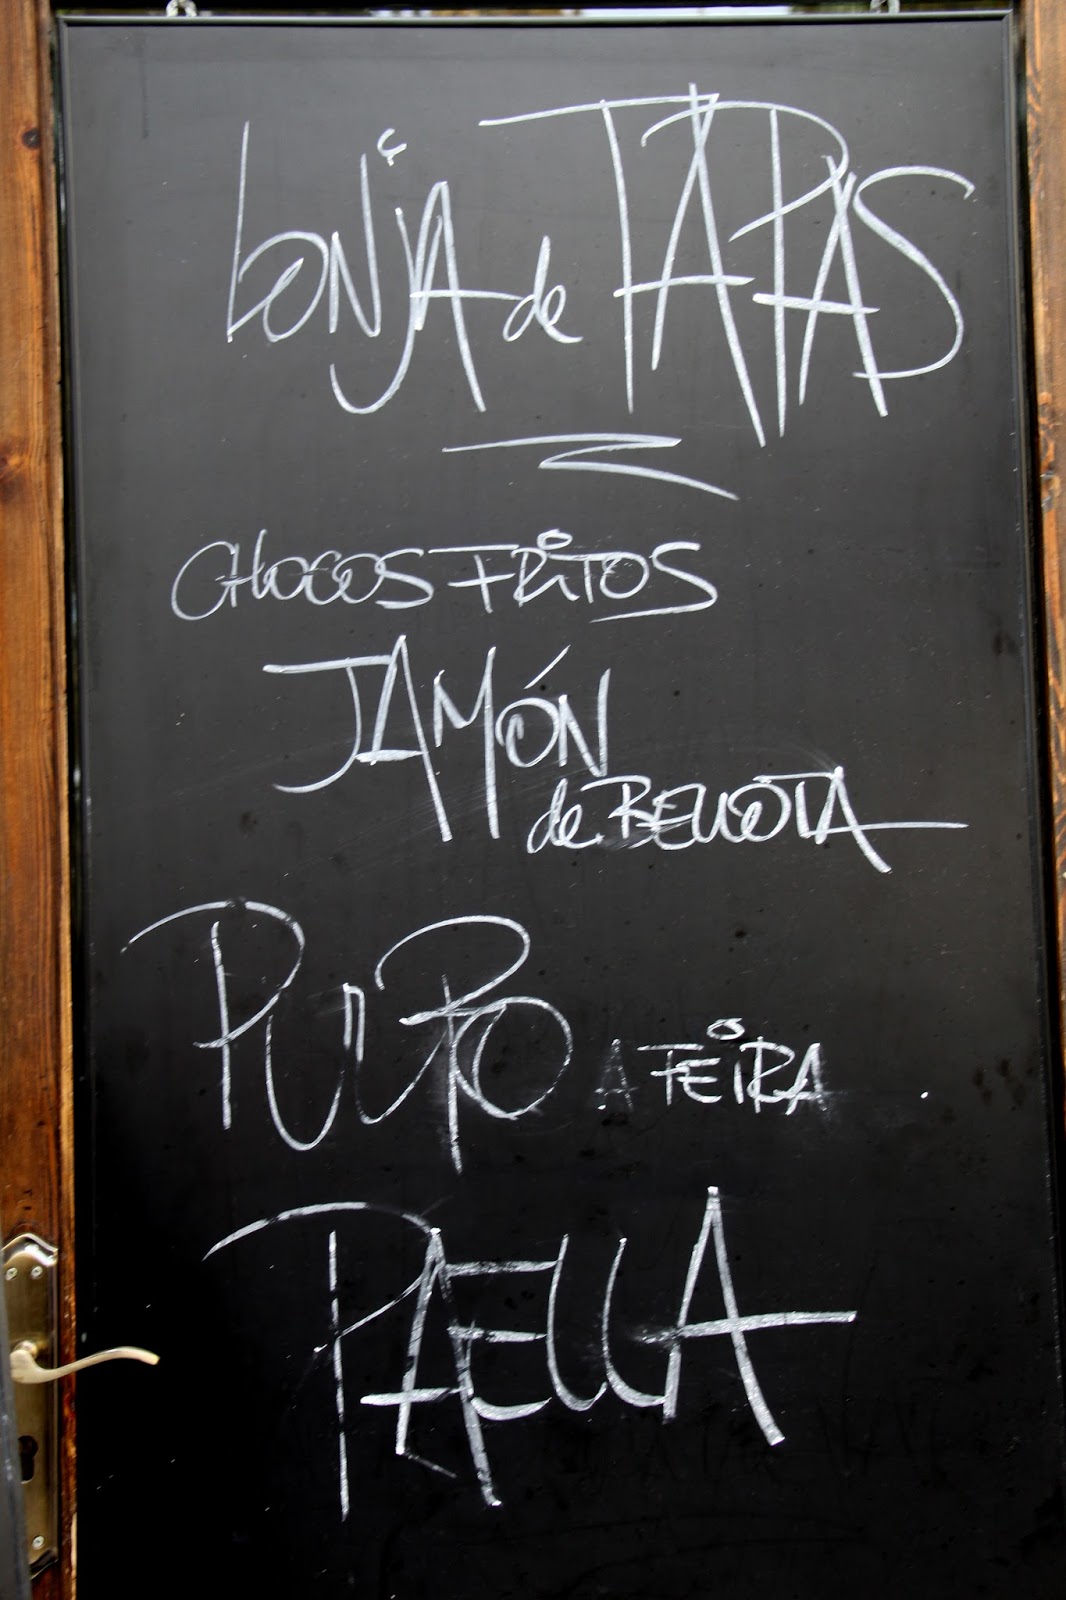 LONJA de TAPAS
CHOCOS FRITOS
JAMÓN
de BELLOTA
PULPO A FEIRA
PAELLA